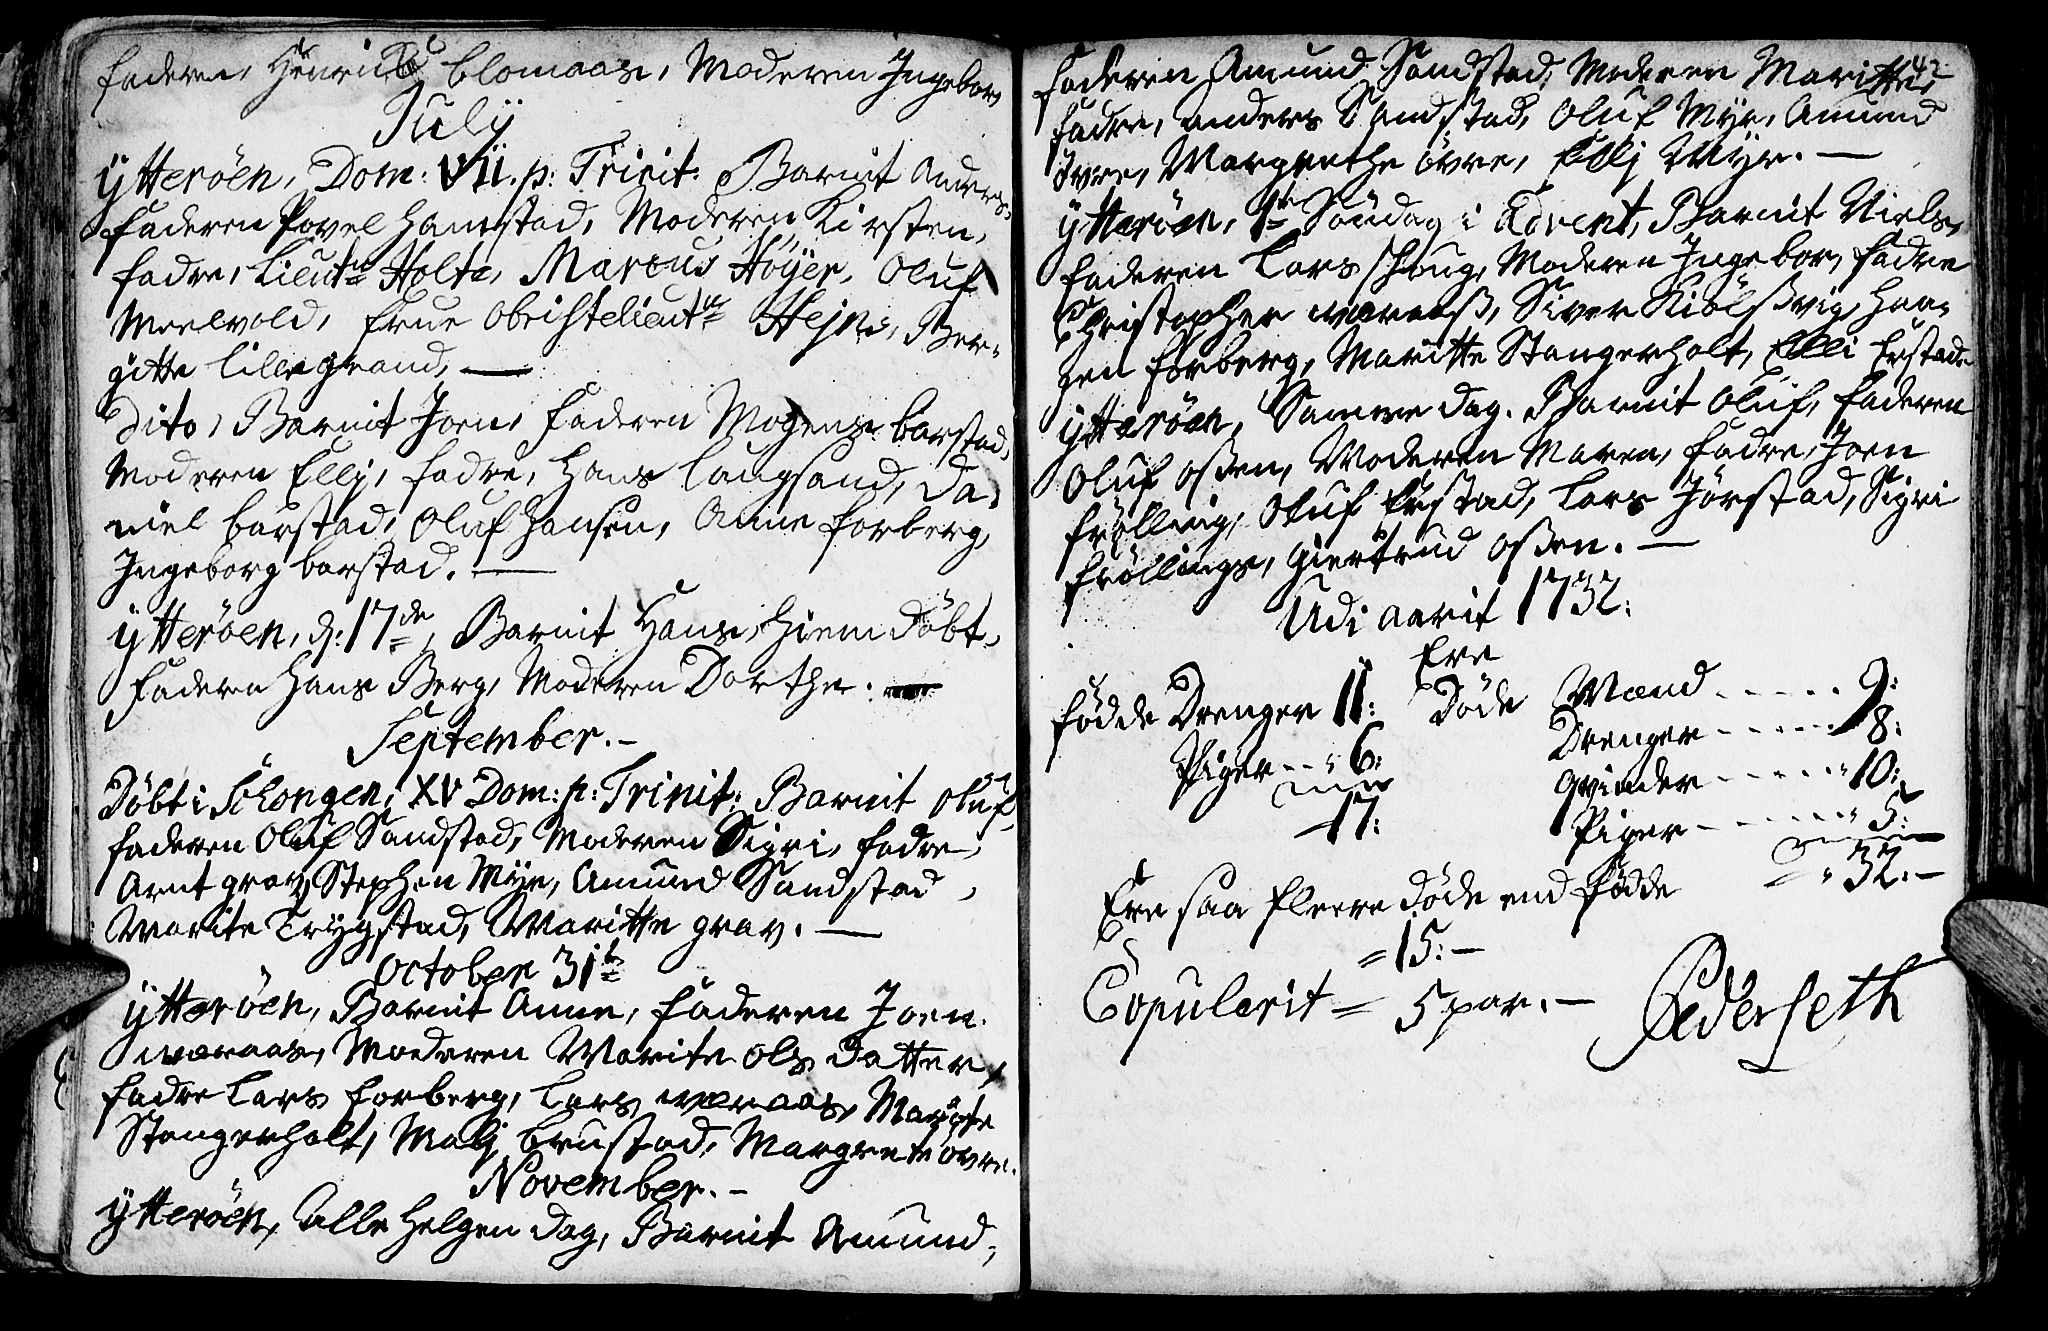 faderen, Henrich blomaas, Moderen Ingebor,
July
Ytterøen, Dom: VII. p: Trinit: Barnit Anders,
faderen Povel hamstad, Moderen Kirsten,
fadre, Lieutn Holte, Marcus Höyer, Oluf
Meelvold, frue Obristelieutn Hejn, Ber-
gitte lillegrand, —
Dito, Barnit Joen, faderen Mogens barstad,
Moderen Ellj, fadre, Hans Laugsand, Da-
niel barstad, Oluf Hansen, Anne forberg,
Ingeborg barstad. —
Ytterøen, d: 17de, Barnit Hans, hiemdöbt,
faderen Hans Berg, Moderen Dorthe. —
September. –
Döbt i Schongen, XV Dom: p: Trinit: Barnit Oluf,
faderen Oluf Sandstad, Moderen Sigri, fadre,
Arnt grav, Stephen Myr, Amund Sandstad,
Marite Trygstad, Maritte grav. —
October 31t
Ytterøen, Barnit Anne, faderen Joen
væraas, Moderen Marite Ols Datter,
fadre Lars forberg, Lars væraas, Marite
Stangerholt, Malj brustad, Margrete övre.
November. –
Ytterøen, Alle Helgen Dag, Barnit Amund,
42.
faderen Amund Sandstad, Moderen Maritte,
fadre, Anders Sandstad, Oluf Myr, Amund
övre, Margrethe övre, Ellj Myr. —
Ytterøen, 1te Söndag i Advent, Barnit Niels,
faderen Lars Houg, Moderen Ingebor, fadre
Christopher væraaß, Siver Kiölßvig, Haa-
gen forberg, Maritte Stangerholt, Elli Erstad
Ytterøen, Samme dag. Barnit Oluf, faderen
Oluf Oßen, Moderen Maren, fadre, Joen
frölling, Oluf Erstad, Lars Jörstad, Sigri
fröllings, Giertrud Oßen. —
Udi aarit 1732:
Ere
födde Drenger 11: Döde Mænd - - - - - 9:
Piger - - 6: Drenger - - - - - 8:
17: Qvinder - - - - - 10:
Piger - - - - - 5:
Ere saa fleere döde end födde 32. –
= 15: –
Copulerit = 5 par. – Peder Seth